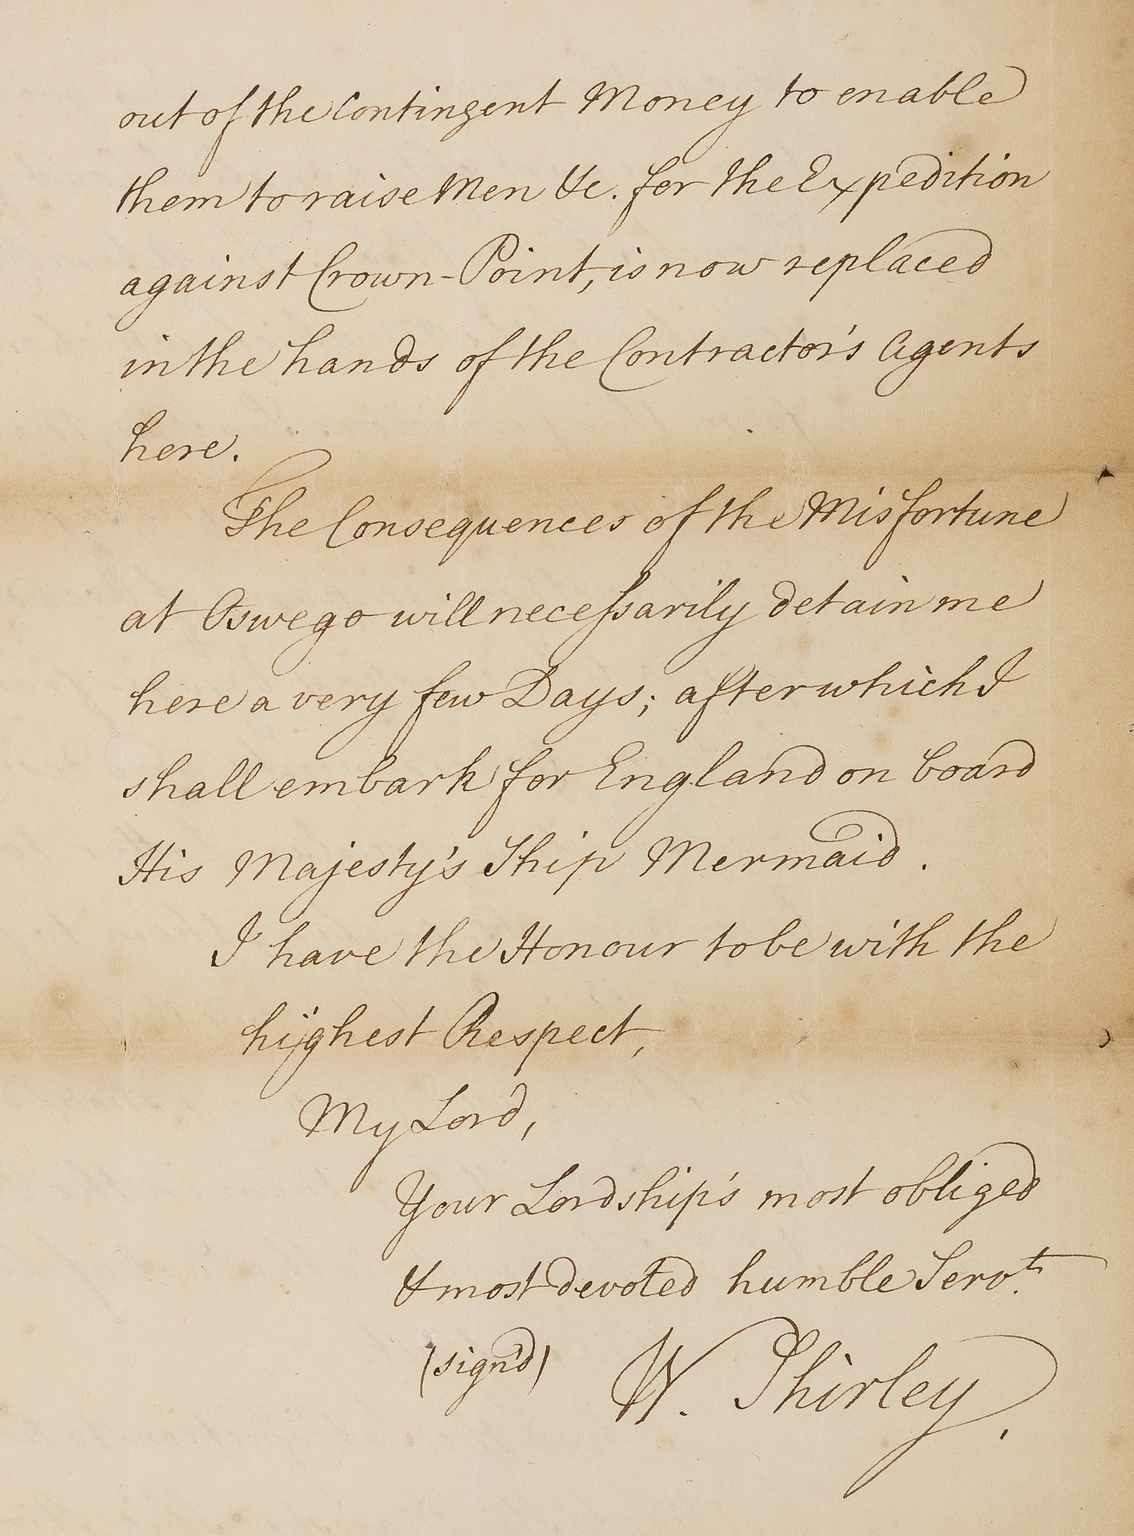 out of the Contingent Money to enable
them to raise Men &c. for the Expedition
against Crown-Point, is now replaced
in the hands of the Contractor's Agents
here.
The Consequences of the Misfortune
at Oswego will neceſsarily detain me
here a very few Days; after which I
shall embark for England on board
His Majesty's Ship Mermaid.
I have the Honour to be with the
highest Respect,
My Lord,
Your Lordship's most obliged
& most devoted humble Servt.
(sign'd) W. Shirley.